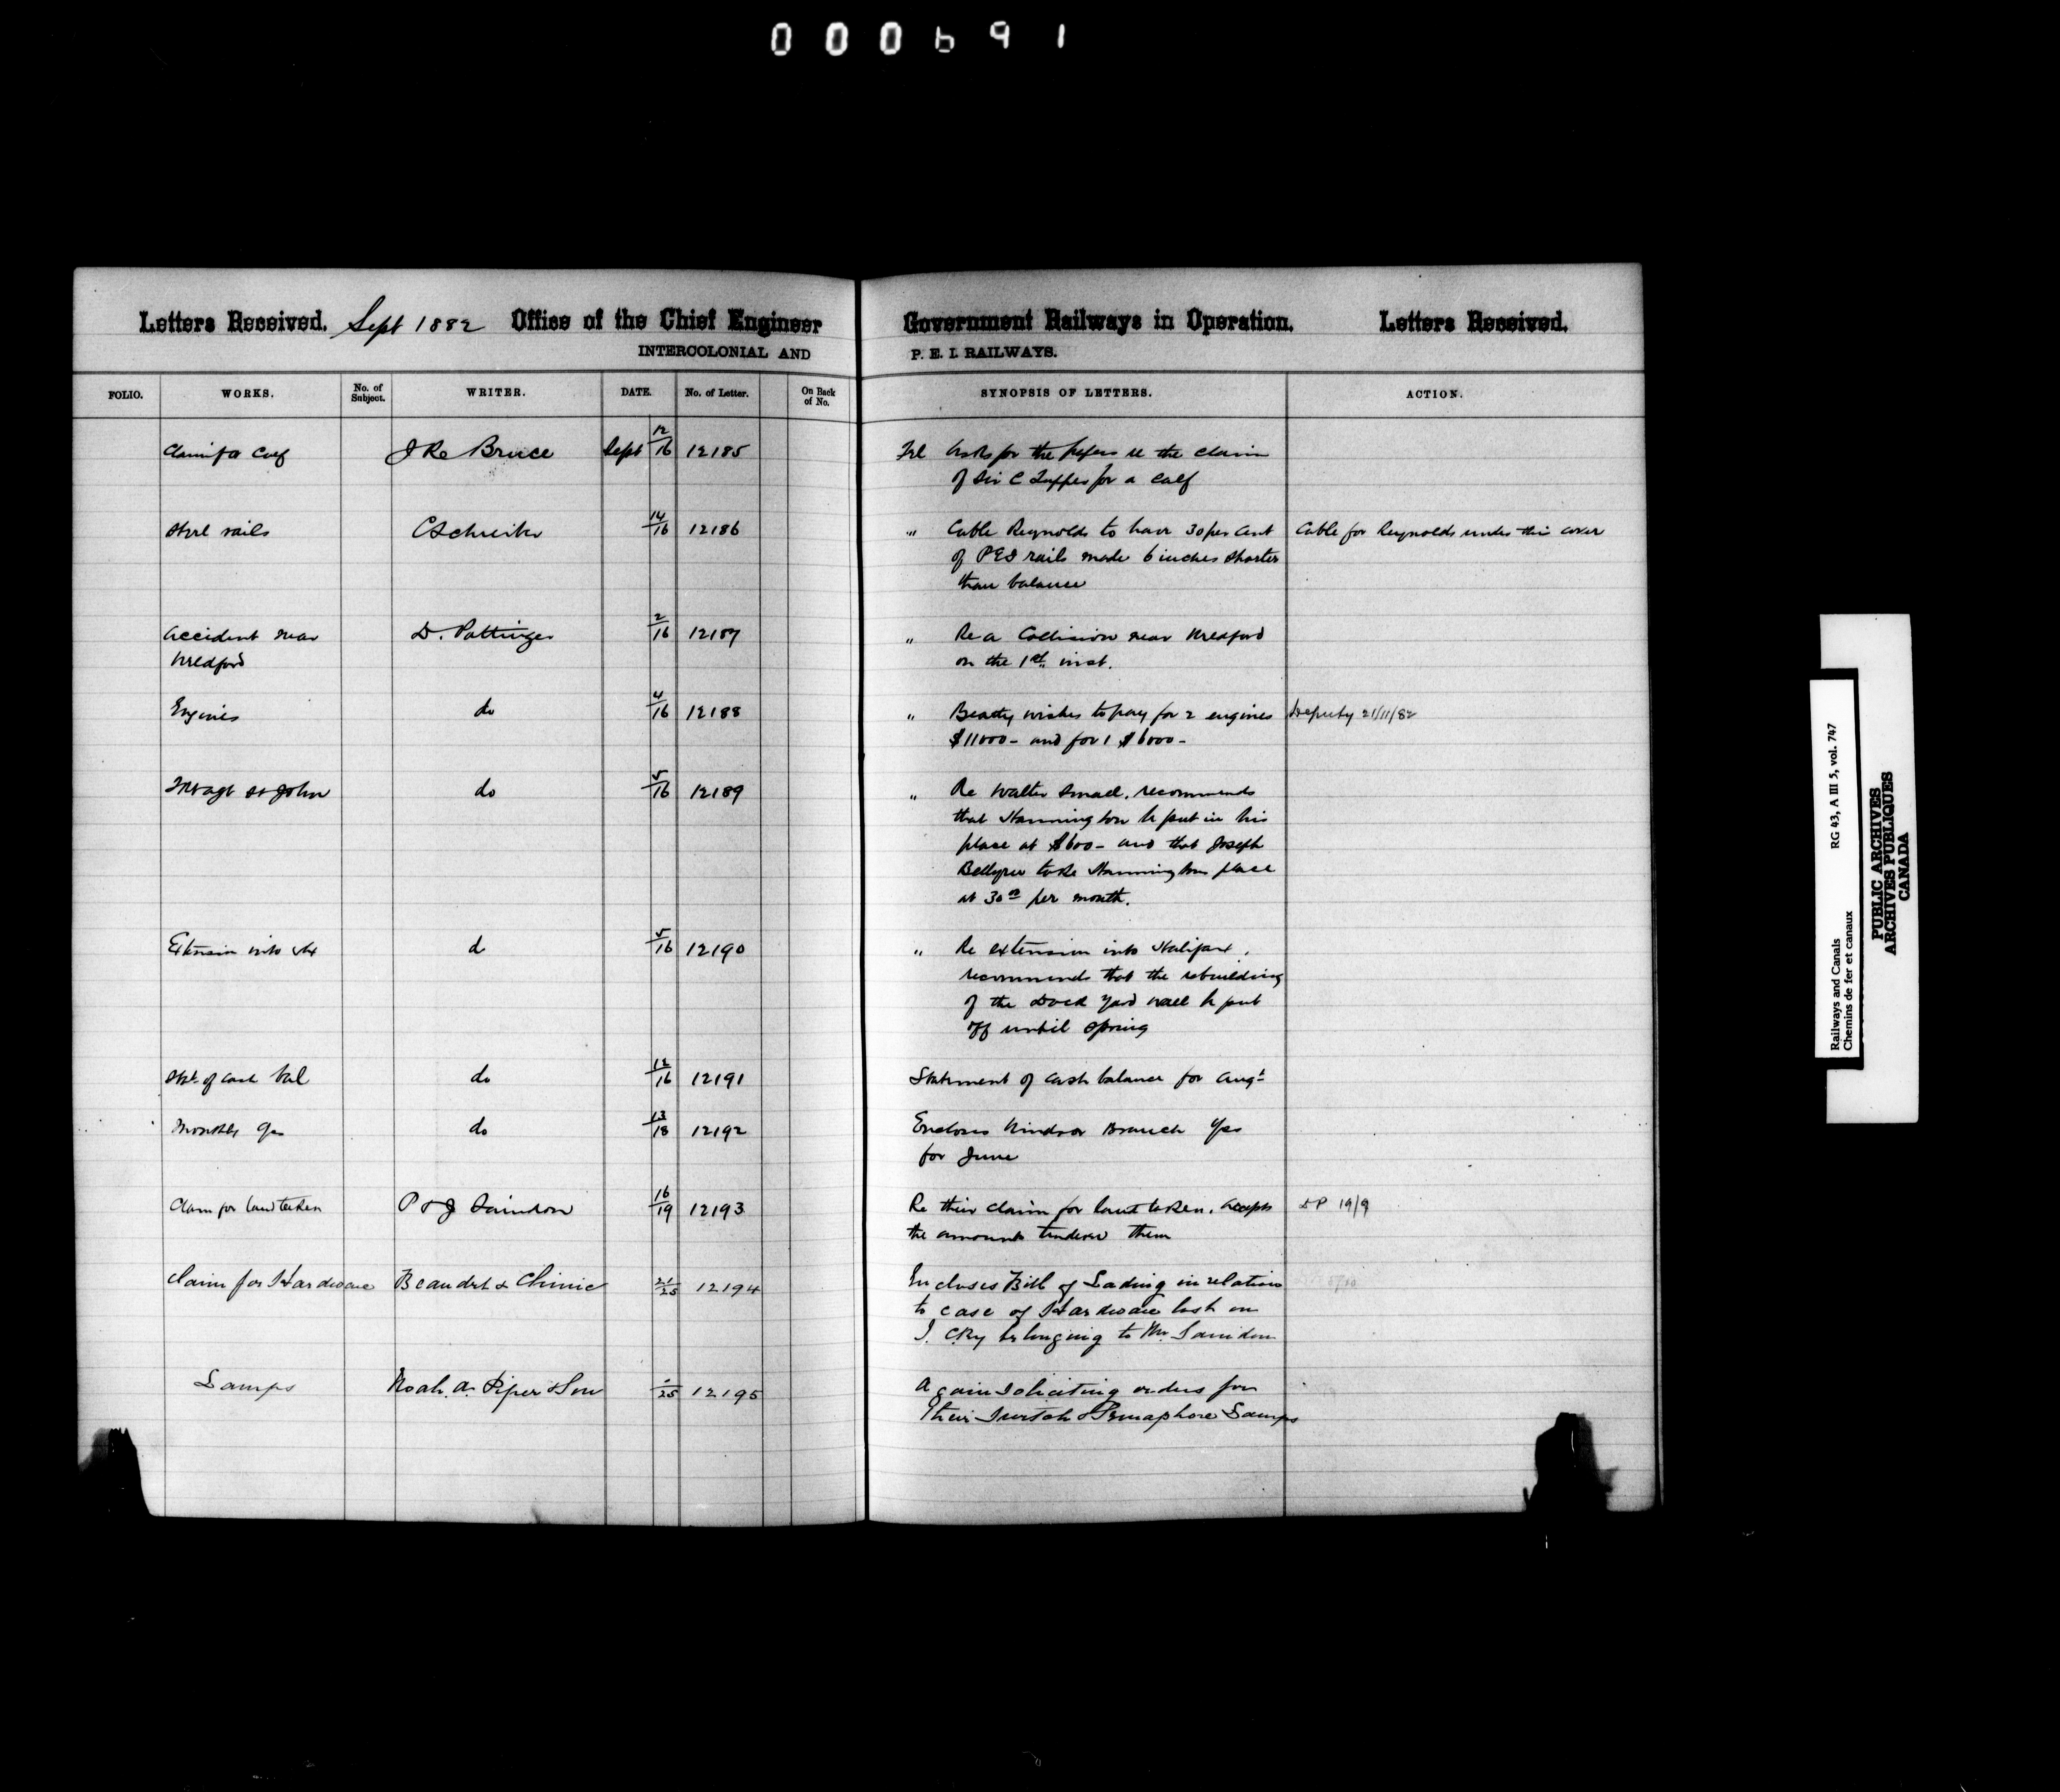 000691
Letters Received. Sept 1882 Office of the Chief Engineer Government Railways in Operation. Letters Received.
INTERCOLONIAL AND P. E. I. RAILWAYS.
FOLIO. WORKS. No. of Subject. WRITER. DATE. No. of Letter. On Back of No. SYNOPSIS OF LETTERS. ACTION.
Claim for Calf J R Bruce Sept 12/16 12185 Tel Asks for the papers re the claim
of Sir C Tupper for a calf
Steel rails C Schreiber 14/16 12186 " Cable Reynolds to have 30 per cent Cable for Reynolds under this cover
of PEI rails made 6 inches shorter
than balance
Accident near D. Pottinger 2/16 12187 " Re a Collision near Medford
Medford on the 1st inst.
Engines do 4/16 12188 " Beatty wishes to pay for 2 engines Deputy 21/11/82
$11000- and for 1 $6000-
St John do 5/16 12189 " Re Walter Small. recommends
that Hannington be put in his
place at $600- and that Joseph
take Hannington place
at 30 00 per month.
Extension into Hx d 5/16 12190 " Re extension into Halifax.
recommends that the rebuilding
of the Dock Yard wall be put
off until Spring
Stat. of cash bal do 12/16 12191 Statement of cash balance for Augt
Monthly do 13/18 12192 Encloses Windsor Branch
for June
Claim for land taken P & J Saindon 16/19 12193 Re their claim for land taken. Accepts DP 19/9
the amounts tendered them
Claim for Hardware Beaudet & Chinic 21/25 12194 Incloses Bill of Lading in relation
to case of Hardware lost on
I. C Ry belonging to Mr. Saindon
Lamps Noah. A. Piper & Son 25 12195 Again soliciting orders for
their Switch & Semaphore Lamps
Railways and Canals RG 43, A III 5, vol. 747
Chemins de fer et canaux
PUBLIC ARCHIVES
ARCHIVES PUBLIQUES
CANADA